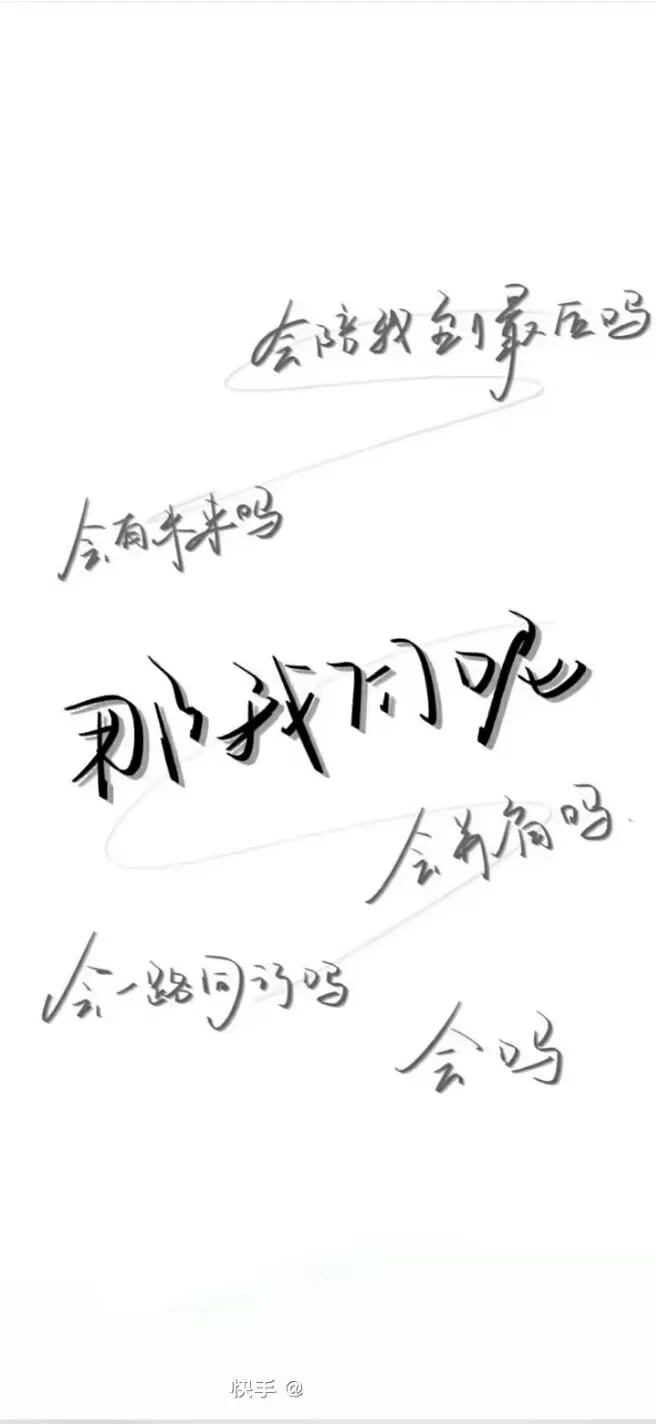 会陪我到最后吗
会有未来吗
那我们呢
会并肩吗
会一路同行吗
会吗
快手 @